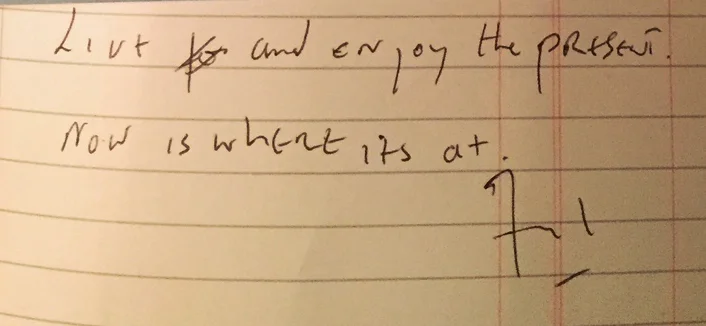 Live and enjoy the PRESENT.
Now is where its at.